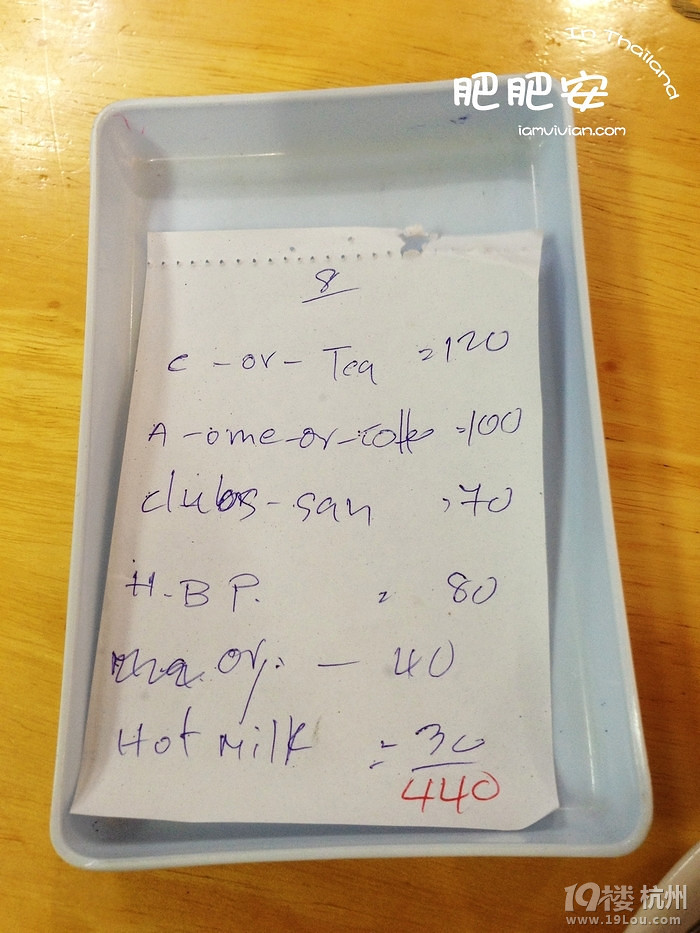 In Thailand
肥肥安
iamvivian.com
8
C - or - Tea = 120
A - ome - or - = 100
clubs - san = 70
H.BP. = 80
or. - 40
Hot Milk = 30
440
19楼 杭州
www.19Lou.com